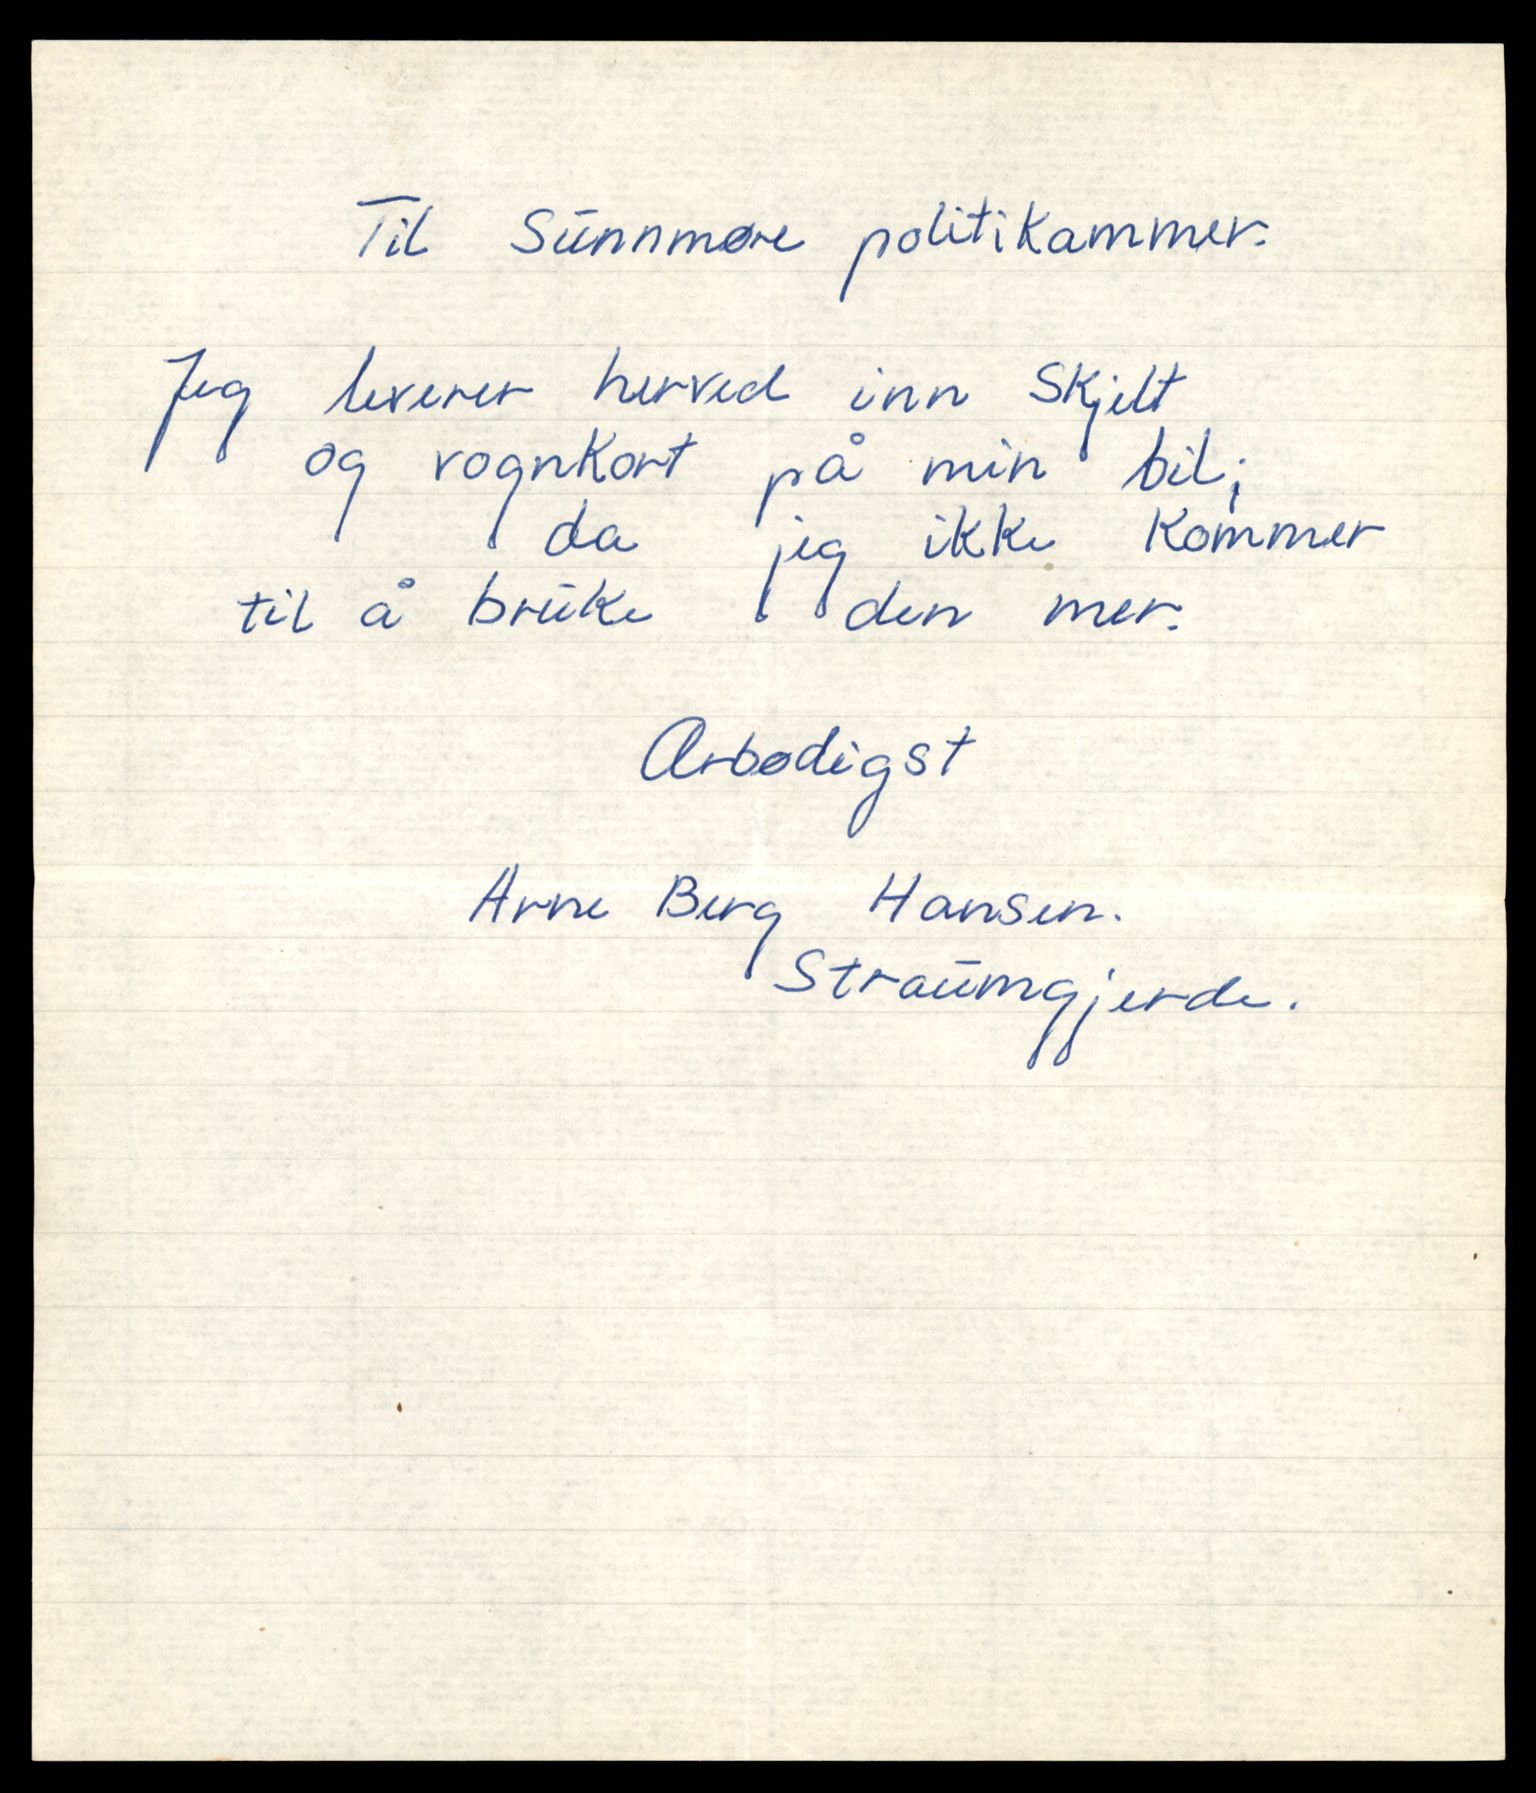 Til Sunnmøre politikammer.
Jeg leverer herved inn skjelt
og vognkort på min bil;
da jeg ikke kommer
til å bruke den mer.
Arbødigst
Arne Berg Hansen.
Straumgjerde.